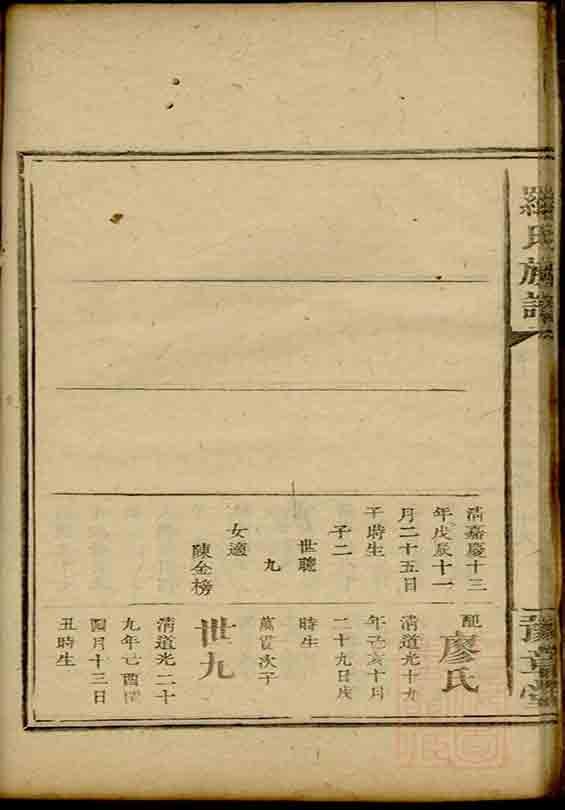 羅氏族譜
豫章堂
清嘉慶十三
年戊辰十一
月二十五日
子時生
子二
世聰
九
女適
陳金榜
配廖氏
清道光十九
年己亥十月
二十九日戌
時生
萬貴次子
世九
清道光二十
九年己酉閏
四月十三日
丑時生